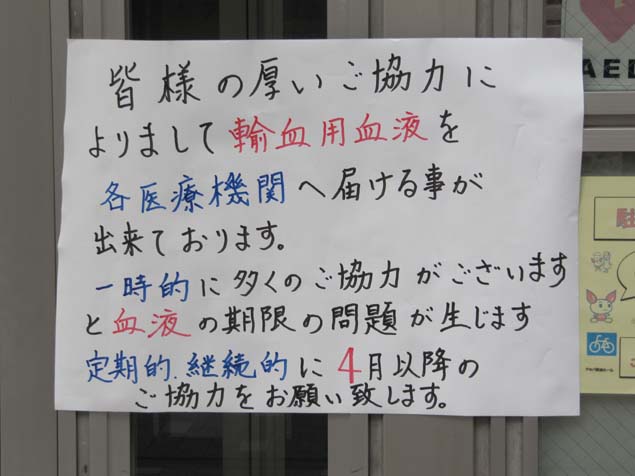 皆様の厚いご協力に
よりまして輸血用血液を
各医療機関へ届ける事が
出来ております。
一時的に多くのご協力がございます
と血液の期限の問題が生じます
定期的.継続的に4月以降の
ご協力をお願い致します。
AED
駐